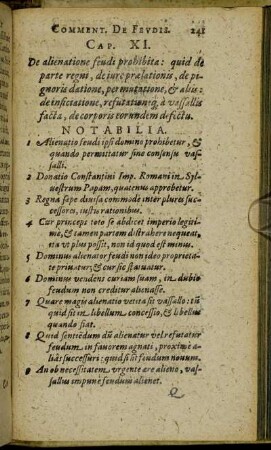 COMMENT. DE FEVDIS. 241
CAP. XI.
De alienatione feudi prohibita: quid de
parte regni, de iure prælationis, de pi-
gnoris datione, permutatione, & aliis:
de infeudatione, refutationeq; à vassallis
facta, de corporis eorundem defectu.
NOTABILIA.
1 Alienatio feudi ipsi domino prohibetur, &
quando permittatur sine consensu vas-
salli.
2 Donatio Constantini Imp. Romani in Syl-
uestrum Papam, quatenus approbetur.
3 Regna sæpe diuisa commode inter plures suc-
cessores, iustis rationibus.
4 Cur princeps toto se abdicet imperio legiti-
mè, & tamen partem distrahere nequeat,
ita vt plus possit, non id quod est minus.
5 Dominus alienator feudi non ideo proprieta-
te priuatur; & cur sic statuatur.
6 Dominus vendens curiam suam, in dubio
feudum non creditur alienasse.
7 Quare magis alienatio vetita sit vassallo: tũ
quid sit in libellum concessio, & libellus
quando fiat.
8 Quid sentiẽdum dũ alienatur vel refutatur
feudum in fauorem agnati, proximè a-
liàs successuri: quid si sit feudum nouum.
9 An ob necessitatem vrgente ære alieno, vas-
sallus impunè feudum alienet.
Q